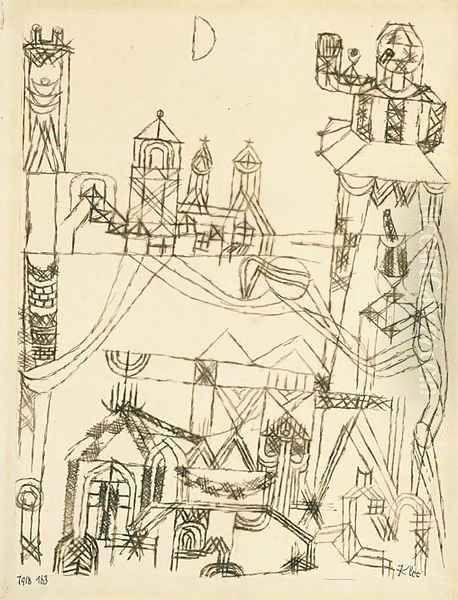 1918 163
Klee